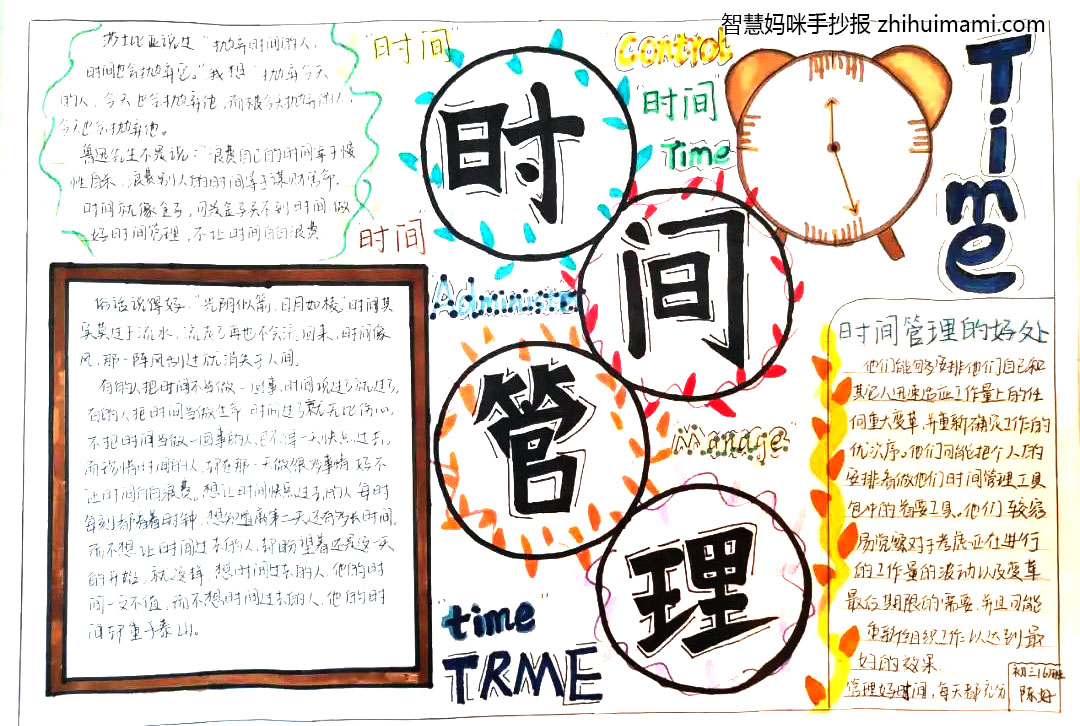 智慧妈咪手抄报 zhihuimami.com
莎士比亚说过"抛弃时间的人,
时间也会抛弃它。"我想 抛弃今天
的人,今天也会抛弃他,而被今天抛弃的人,
今天也会抛弃他。
鲁迅先生不是说:"浪费自己的时间等于慢
性自杀,浪费别人的时间等于谋财害命。
时间就像金子,可是金子买不到时间,做
好时间管理,不让时间白白浪费
"时间"
时间
Control
"时间"
Time
时间
Time
时间管理
Administe
Manage
"time"
TRME
俗话说得好,"光阴似箭,日月如梭"时间其
实莫过于流水,流走了再也不会流回来,时间像
风,那一阵风刮过就消失于人间。
有的人把时间不当做一回事,时间说过了就过了,
有的人把时间当做生命 时间过了就无比伤心,
不把时间当做一回事的人,巴不得一天快点过去,
而珍惜时间的人,却在那一天做很多事情 好不
让时间白白浪费。想让时间快点过去的人每时
每刻都看着时钟,想知道离第二天还有多长时间。
而不想让时间过去的人,却盼望着还是这一天
的开始,就这样,想时间过去的人,他的时
间一文不值,而不想时间过去的人,他的时
间却重于泰山。
时间管理的好处
他们能够安排他们自己和
其它人迅速适应工作量上的任
何重大变革,并重新确定工作的
优次序。他们可能把个人的
安排看做他们时间管理工具
包中的首要工具。他们较容
易觉察对于考虑正在进行
的工作量的波动以及变革
最后期限的需要,并且可能
重新组织工作以达到最
好的效果
管理好时间,每天都充分
初三16班
陈好